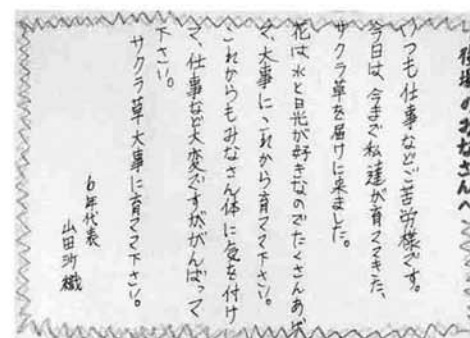 役場のみなさんへ
いつも仕事などご苦労様です。
今日は、今まで私達が育ててきた、
サクラ草を届けに来ました。
花は水と日光が好きなのでたくさんあげ
て、大事に、これから育てて下さい。
これからもみなさん体に気を付け
て、仕事など大変ですががんばって
下さい。
サクラ草大事に育てて下さい。
6年代表
山田沙織